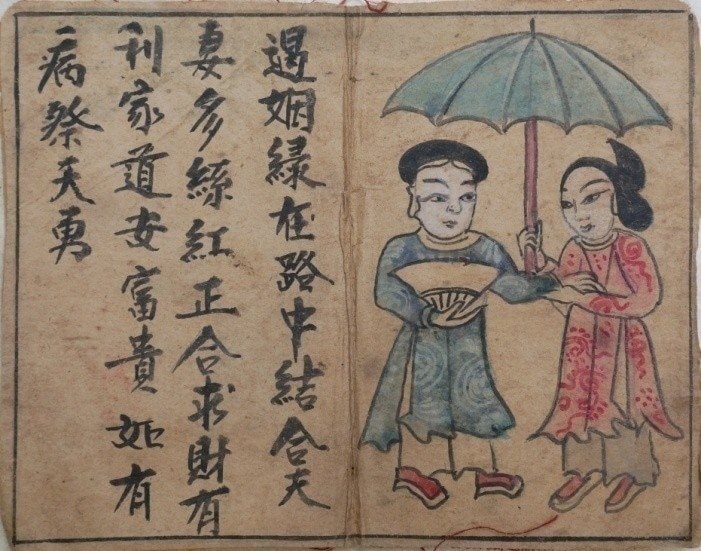 遏姻緣在路中結合夫
妻多絲紅正合求財有
利家道安富貴如有
病祭天勇